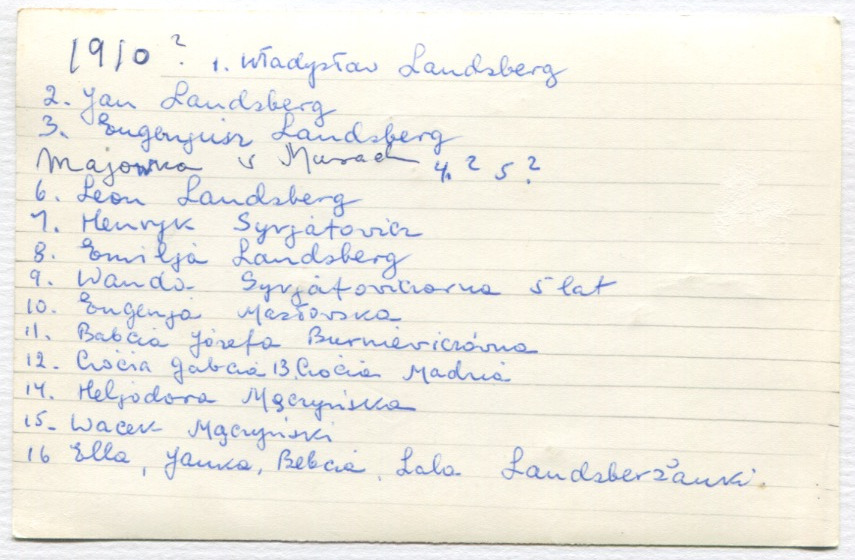 1910? 1. Władysław Landsberg
2. Jan Landsberg
3. Eugenjusz Landsberg
Majowka w Murach 4.? 5?
6. Leon Landsberg
7. Henryk Syrjatowicz
8. Emilja Landsberg
9. Wanda Syrjatowiczowna 5 lat
10. Eugenja Masłowska
11. Babcia Józefa Burniewiczówna
12. Ciocia Gabcia 13. Ciocia Madzia
14. Heljodora Mączyńska
15. Wacek Mączyński
16 Ella, Janka, Bebcia, Lala Landsberżanki